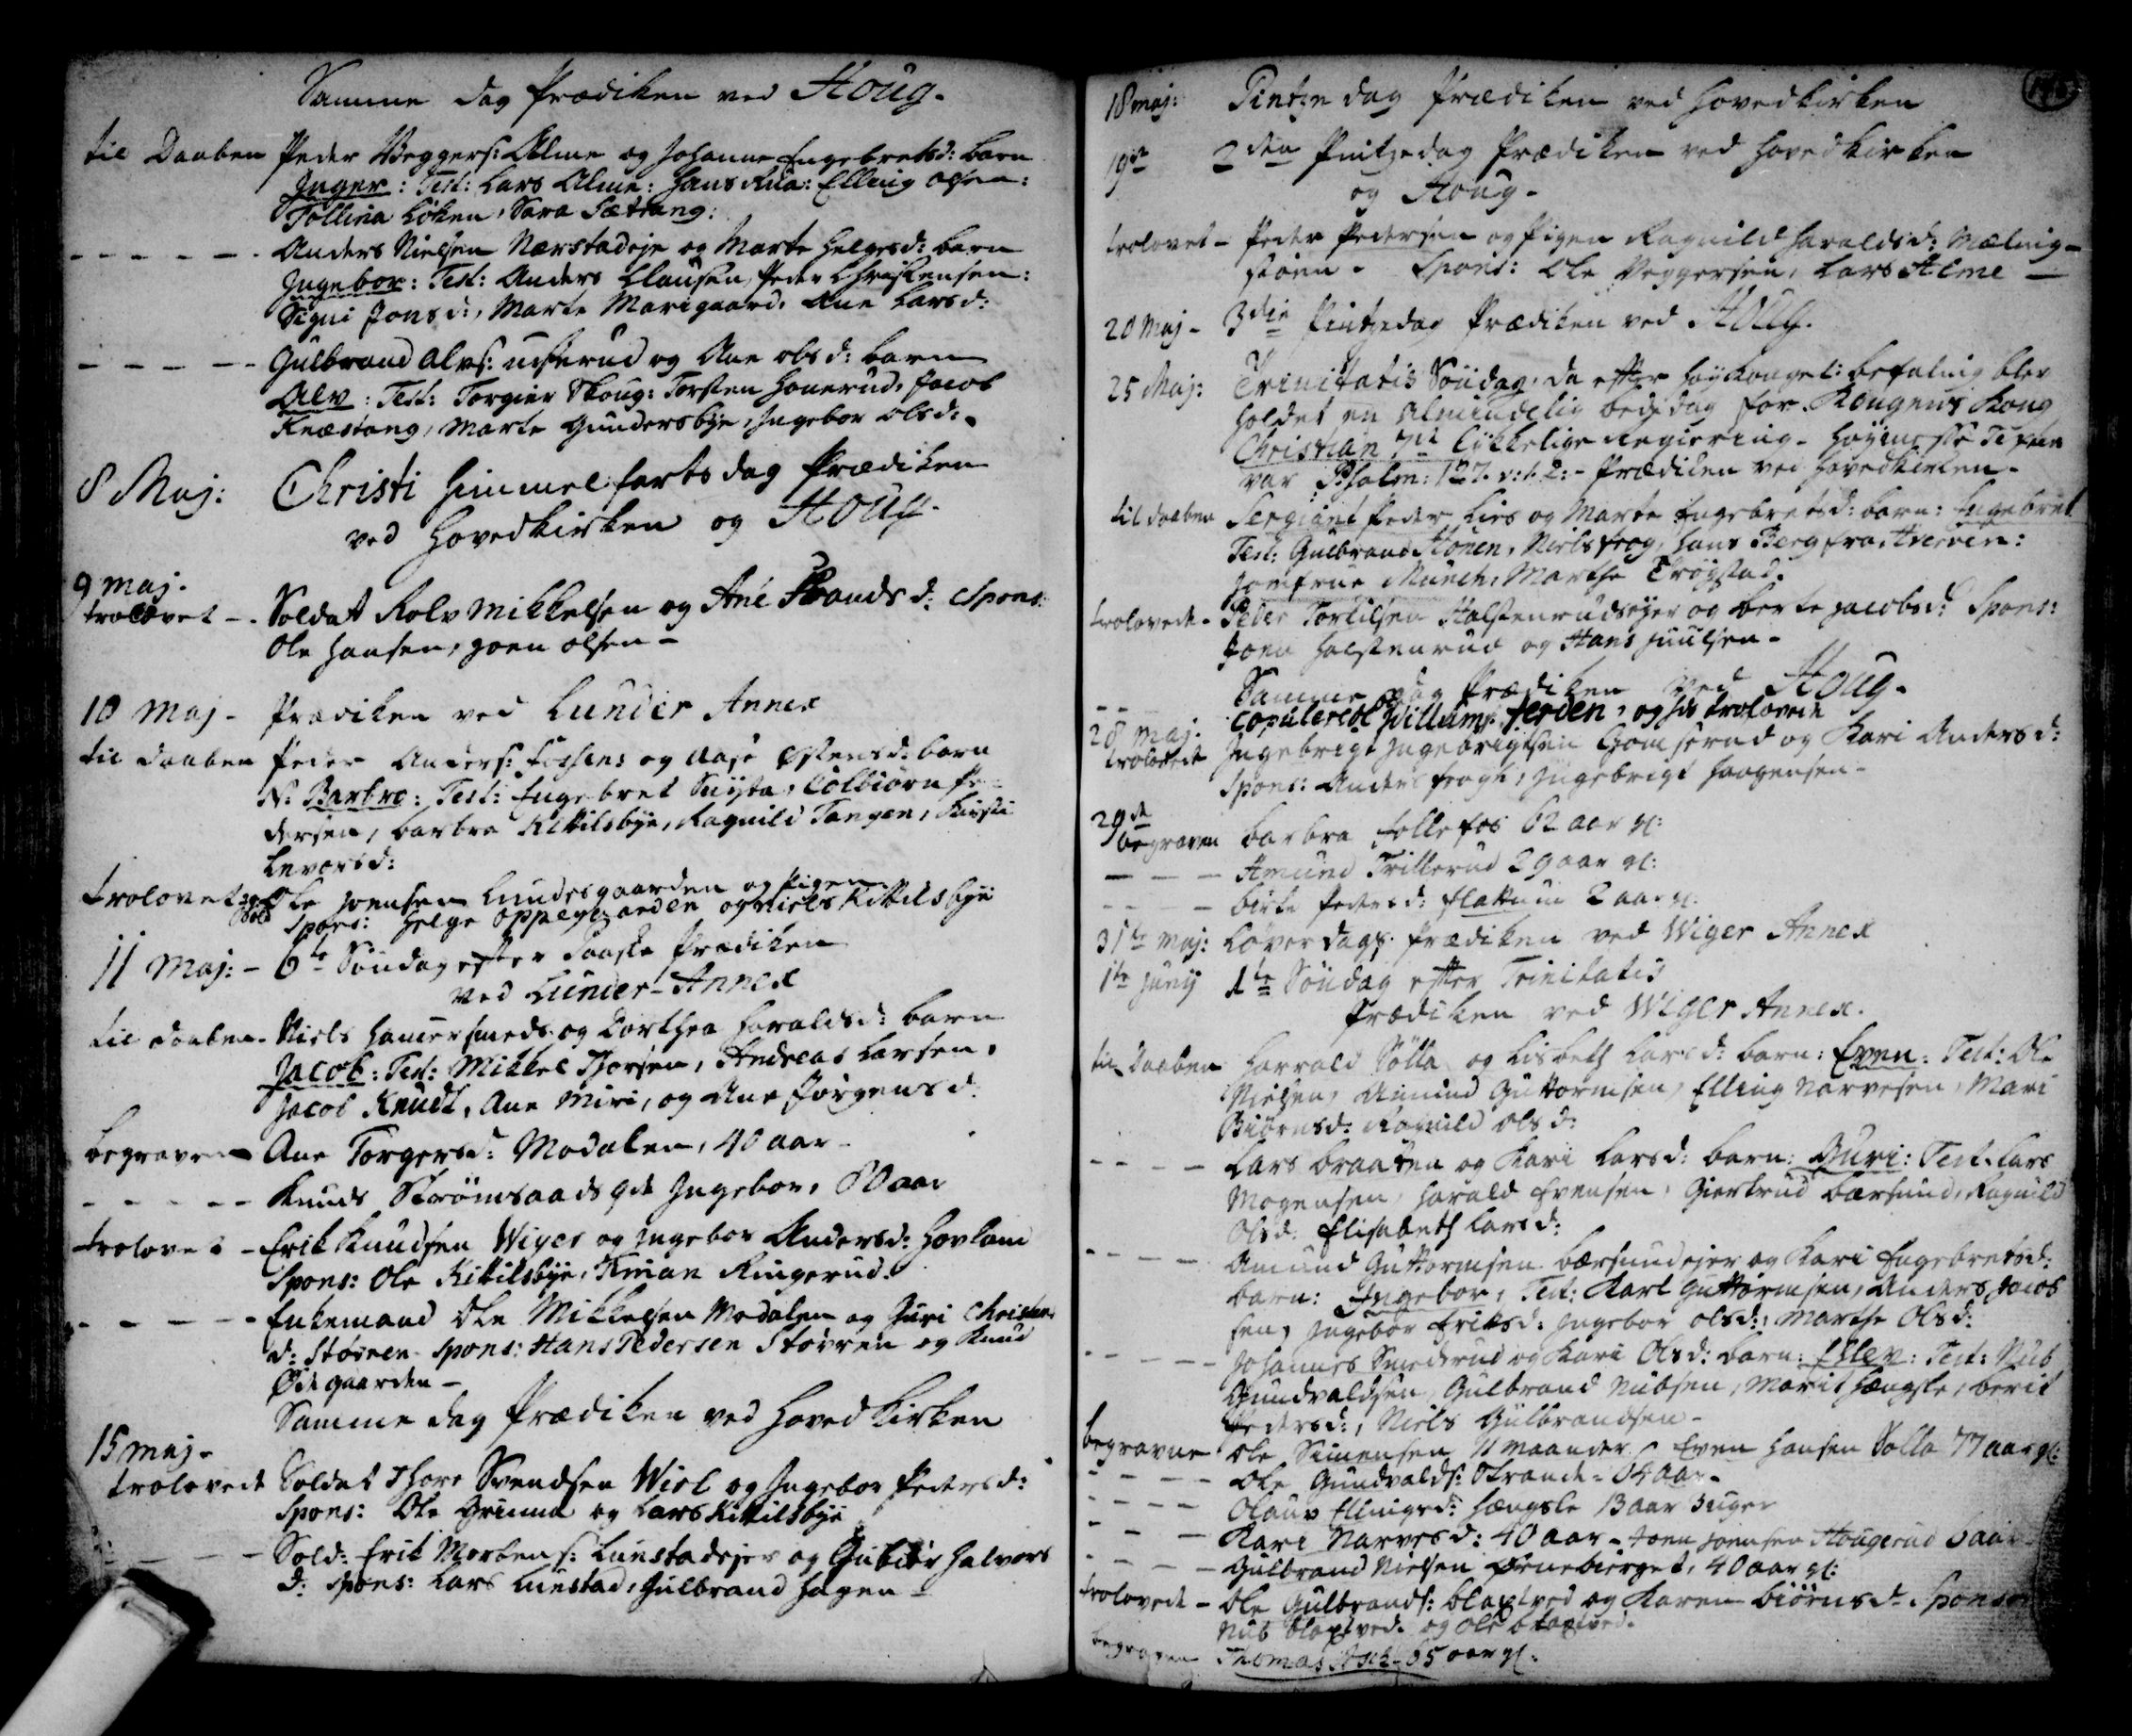 Samme dag Prædiken ved Houg.
til Daaben Peder Weggers: Alme og Johanne Engebretsd: barn
Inger: Test: Lars Alme: Hans Rua: Elling olsen:
Tollina Løken, Sara Sætrang:
Anders Nielsen Nærstadeje og Marte Helgesd: barn
Ingebor: Test: Anders Clausen, Peder Christensen:
Signi Jonsd:, Marte Morigaard, Ane Larsd:
Gulbrand Alvs: og Ane olsd: barn
Alv: Test: Torgier Skoug: Torsten Honerud, Jacob
Knæstang, Marte Gundersbye, Ingebor olsd:
8 Maj: Christi Himmelfarts dag Prædiken
ved Hovedkirken og Houg.
9 maj.
trolovet - Soldat Rolv Mikkelsen og Ane d: Spons:
Ole Hansen, Joen olsen -
10 Maj - Prædiken ved Lunder Annex
til daaben Peder Anders: og Aase Østensd: barn
N: Barbro: Test: Engebret Colbiørn Pe-
dersen, barbra Kittilsbye, Ragnild Tangen, Kirsti
Leversd:
trolovet Ole Joensen Lundesgaarden og Pigen
Spons: Helge Oppegaarden og Niels Kittilsbye
11 Maj: - 6te Søndag efter Paaske Prædiken
ved Lunder-Annex
til daaben - Niels Hamersmeds og Dorthea Haraldsd: barn
Jacob: Test: Mikkel Thorsen, Andreas Larsen,
Jacob Knuds, Ane Miri, og Ane Jørgensd:
begraven Ane Torgersd: Modalen, 40 aar -
Knuds Strømsaads qde Ingebor, 80 aar
trolovet - Erik Knudsen Wiger og Ingebor Andersd: Hovland
Spons: Ole Kittilsbye, Ringerud.
Enkemand Ole Mikkelsen Modalen og Guri Christens
d: Støveren Spons: Hans Pedersen Støvren og Knud
Ødegaarden -
Samme dag Prædiken ved Hovedkirken
15 maj -
trolovede Soldat Thore Svendsen Wiel og Ingebor Pedersd:
Spons: Ole Grimme og Lars Kittilsbye
Sold: Erik Mortens: Lunstadejer og Gubiør Halvors
d: Spons: Lars Lunstad, Gulbrand Hagen -
18 maj: Pintze dag Prædiken ved Hovedkirken
19de 2den Pintzedag Prædiken ved Hovedkirken
og Houg -
trolovet - Peder Pedersen og Pigen Ragnild Haraldsd: Mælnig-
støen - Spons: Ole Veggersen, Lars Alme -
20 Maj - 3die Pintzedag Prædiken ved Houg.
25 Maj: Trinitatis Søndag, da efter Høykongel: befaling blev
holdet en Almindelig bededag for Kongens Kong
Christian 7de Lykkelige Regiering - Høymesse Texten
var Psalm: 127. v: 1. 2: - Prædiken ved Hovedkirken -
til daaben Sergiant Peder Lies og Marte Engebretsd: barn: Engebret
Test: Gulbrand Hønen, Niels Frog, Hans Berg fra Averøen:
Jomfrue Münch, Marthe Trøgstad.
trolovede - Peder Tortilsen Halstenrudsejer og berte Jacobsd: Spons:
Joen Halstenrud og Hans Juulsen -
Samme dag Prædiken ved Houg -
copuleret Willum Ferden, og hs trolovede
28 maj:
trolovede Ingebrigt Ingebrigtsen Gomserud og Kari Andersd:
Spons: Anders Frogh, Ingebrigt Haagensen -
29de
begraven barbra follefos 62 aar gl:
Amund Trillerud 29 aar gl:
birte Pedersd: Flattum 2 aar gl:
31te maj: Løverdags Prædiken ved Wiger Annex
1te Junij 1te Søndag efter Trinitatis
Prædiken ved Wiger Annex.
til Daaben Harrald Sølla og Lisbeth Larsd: barn: Even: Test: Ole
Nielsen, Amund Guttormsen, Elling Narvesen, Mari
Biørnsd: Ragnild olsd:
Lars braaten og Kari Larsd: barn: Guri: Test: Lars
Mogensen, Harald Evensen, Giertrud bærsund, Ragnild
Olsd: Elisabeth Larsd:
Amund Guttormsen bærsundejer og Kari Engebretsd:
barn: Ingebor, Test: Karl Guttormsen, Anders Jacob
sen, Ingebor Eriksd: Ingebor olsd:, Marthe Olsd:
Johannes Smederud og Kari Olsd: barn: Eslev: Test: Nub
Gundvaldsen, Gulbrand Nubsen, Marit Hængsle, berit
Pedersd:, Niels Gulbrandsen -
begravne Ole Simensen 11 maander - Even Hansen Sølla 77 aar gl:
Ole Gundvalds: Strande 84 aar -
Olaus Ellingsd: Hængsle 13 aar 3 uger
Kari Narvesd: 40 aar - Joen Joensen Hougerud 6 aar
Gulbrand Nielsen Venebierget, 40 aar gl:
trolovede - Ole Gulbrands: blaxtved og Karen biørnsd: Sponso
Nub blaxtved: og Ole blaxtved:
begraven Thomas Ask 65 aar gl: